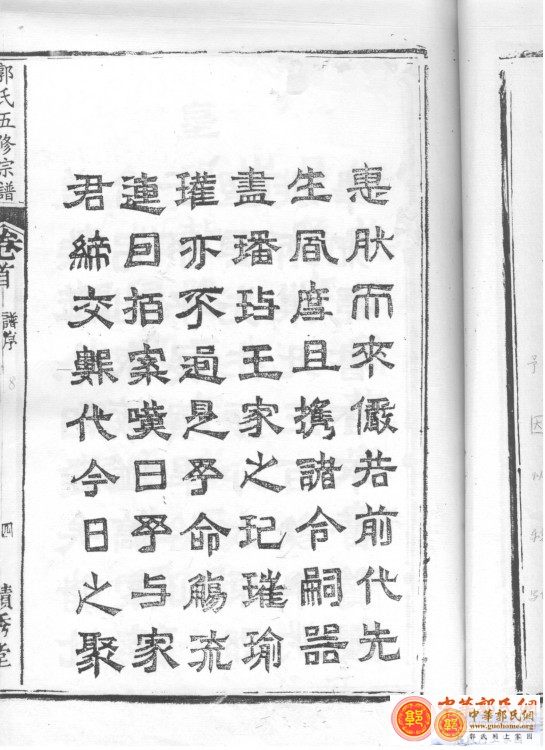 惠肰而來儼若前代先
生風度且攜諸令嗣器
盡璠玷王家之玘璀瑜
瓘亦不過是予命觴流
連回拍案嘆曰予与家
君締交代今日之聚
郭氏五修宗譜
卷首
譜序
四
秀堂
中華郭氏網
中華郭氏網
www.guohome.org
郭氏網上家园